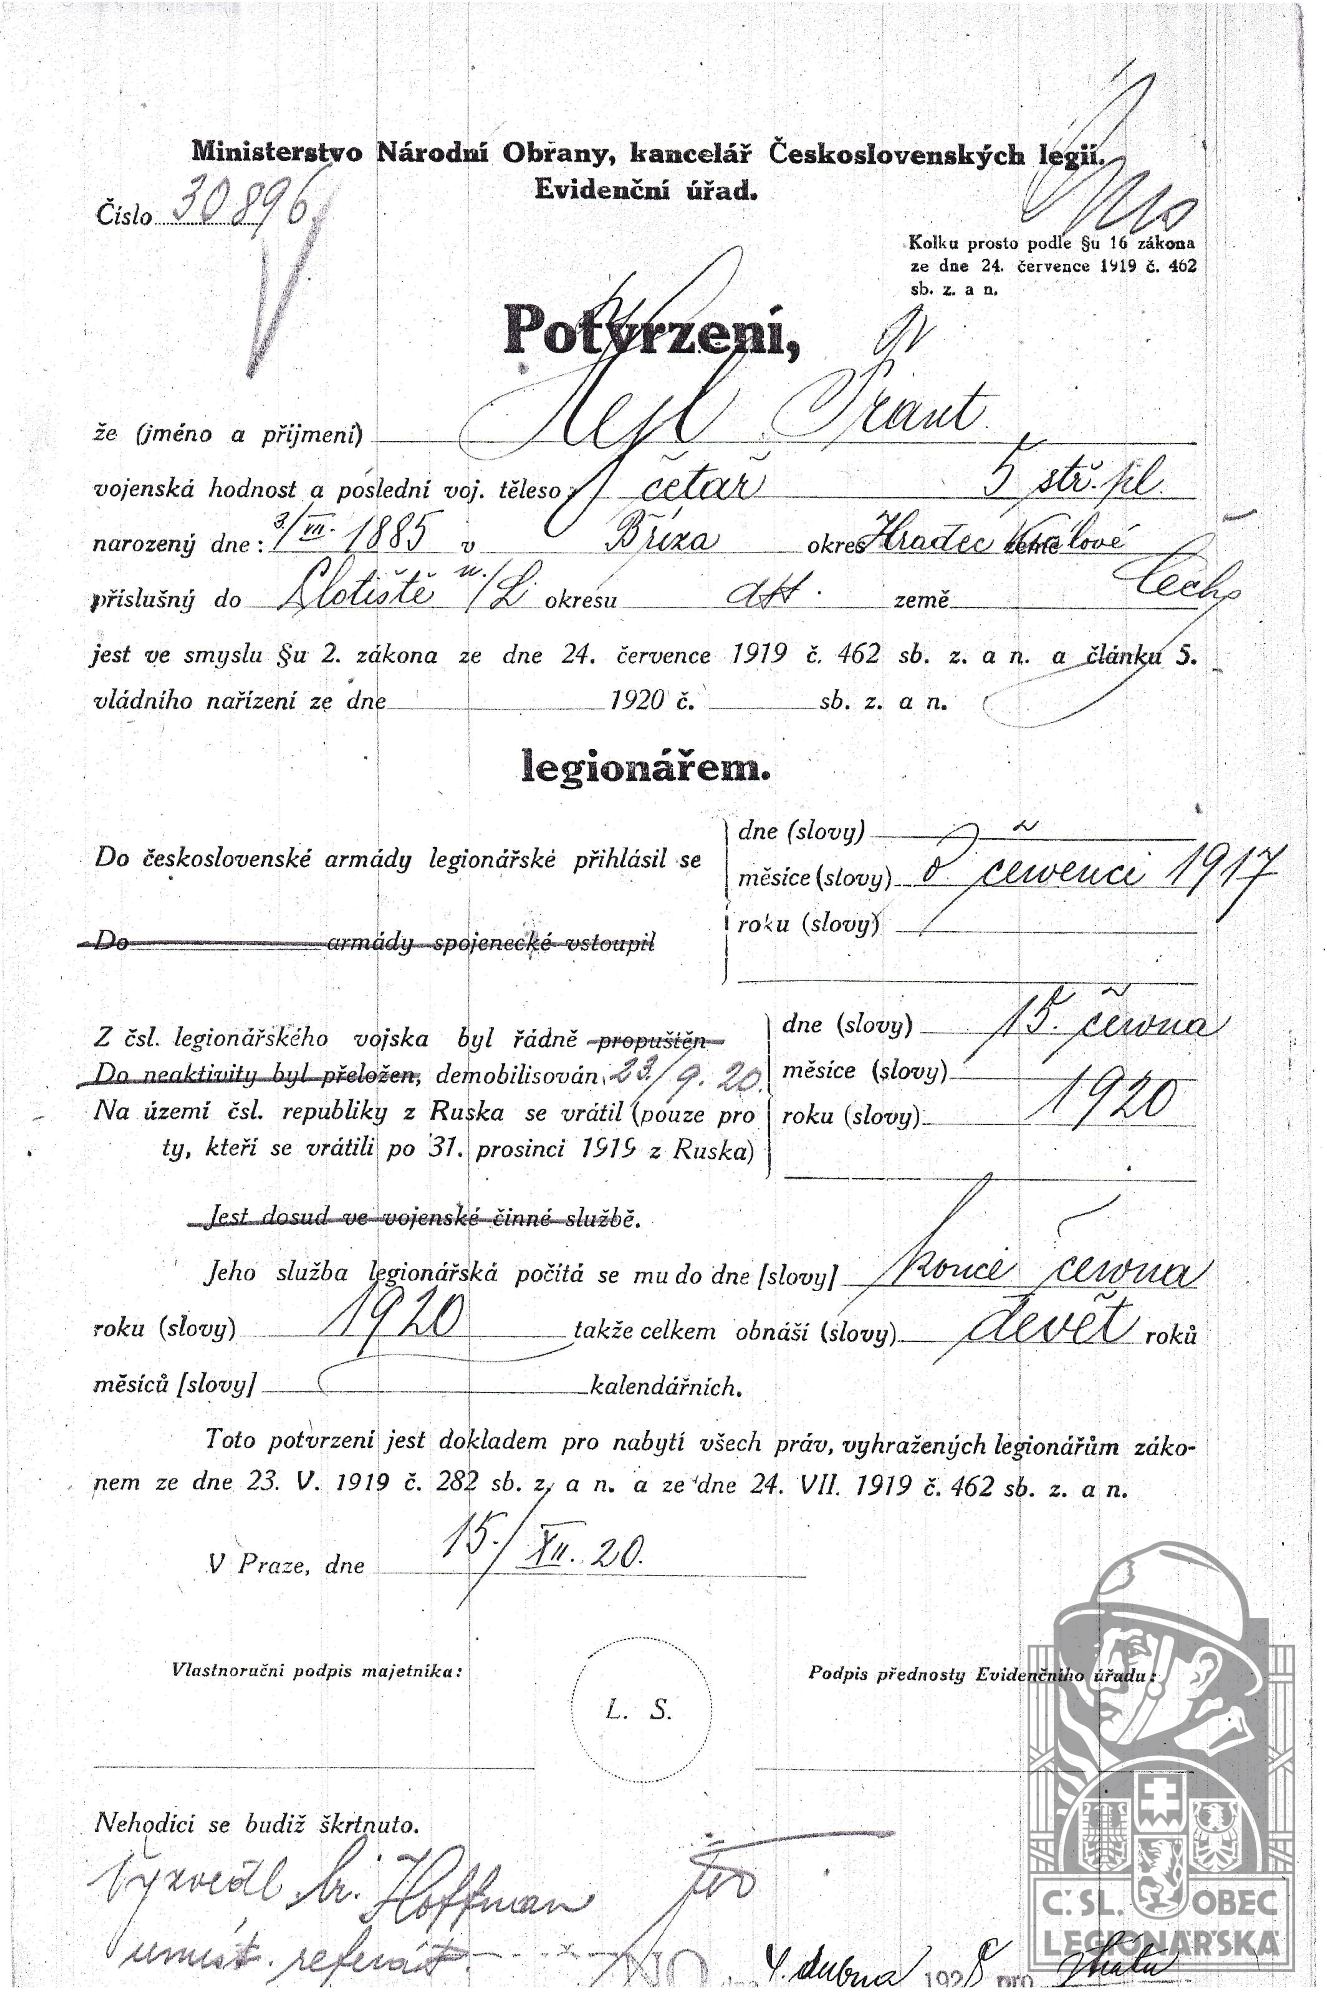 Ministerstvo Národní Obrany, kancelář Československých legií.
Evidenční úřad.
Číslo 30896
Kolku prosto podle §u 16 zákona
ze dne 24. července 1919 č. 462
sb. z. a n.
Potvrzení,
že (jméno a příjmení) Hejl Frant.
vojenská hodnost a poslední voj. těleso: četař 5 stř. pl.
narozený dne: 3./VII. 1885 v Bříza okres Hradec Králové země
příslušný do Lhotiště n./L okresu dtt. země Čechy
jest ve smyslu §u 2. zákona ze dne 24. července 1919 č. 462 sb. z. a n. a článku 5.
vládního nařízení ze dne 1920 č. sb. z. a n.
legionářem.
Do československé armády legionářské přihlásil se
dne (slovy)
měsíce (slovy) v červenci 1917
roku (slovy)
Do armády spojenecké vstoupil
Z čsl. legionářského vojska byl řádně propuštěn
Do neaktivity byl přeložen, demobilisován, 23./9. 20.
Na území čsl. republiky z Ruska se vrátil (pouze pro
ty, kteří se vrátili po 31. prosinci 1919 z Ruska)
dne (slovy) 15. června
měsíce (slovy)
roku (slovy) 1920
Jest dosud ve vojenské činné službě.
Jeho služba legionářská počítá se mu do dne [slovy] konce června
roku (slovy) 1920 takže celkem obnáší (slovy) devět roků
měsíců [slovy] kalendářních.
Toto potvrzení jest dokladem pro nabytí všech práv, vyhražených legionářům záko-
nem ze dne 23. V. 1919 č. 282 sb. z. a n. a ze dne 24. VII. 1919 č. 462 sb. z. a n.
V Praze, dne 15./XII. 20.
Vlastnoruční podpis majetníka:
L. S.
Podpis přednosty Evidenčního úřadu:
Nehodící se budiž škrtnuto.
Vyzvedl br. Hoffman
umíst. referát.
4. dubna 1928 pro ztrátu
Č.SL. OBEC
LEGIONÁŘSKÁ